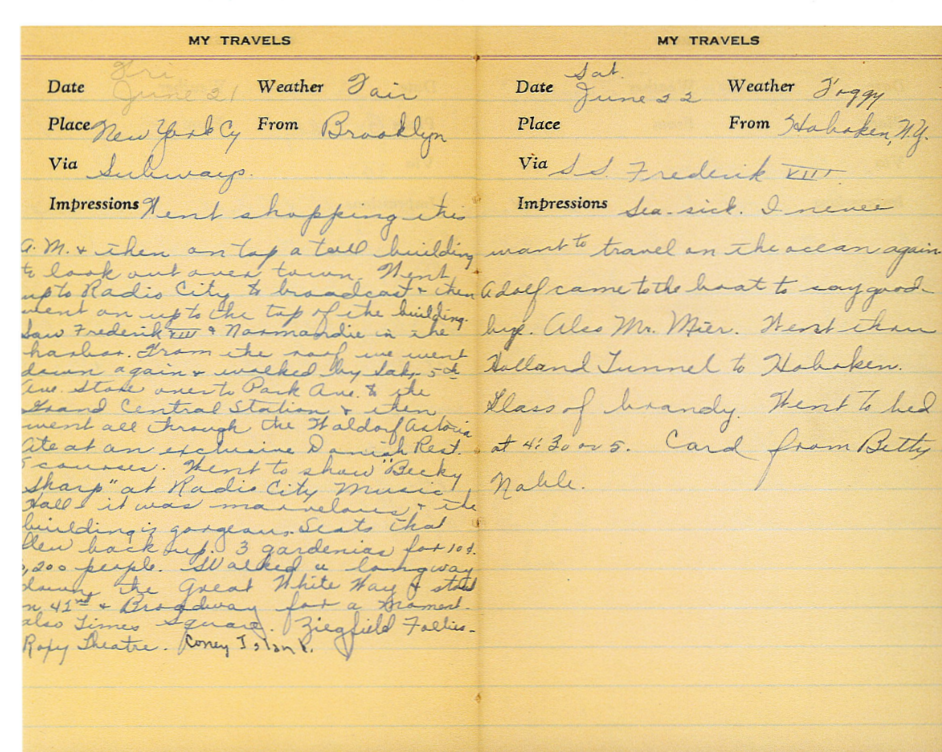 MY TRAVELS
Date Fri. June 21 Weather Fair
Place New York Cy From Brooklyn
Via Subways.
Impressions Went shopping this
A.M. & then on top a tall building
to look out over town. Went
up to Radio City to broadcast & then
went on up to the top of the building.
Saw Frederik VIII & Normandie in the
harbor. From the roof we went
down again & walked by Saks 5th
Ave. Store over to Park Ave. & the
Grand Central Station & then
went all through the Waldorf Astoria
Ate at an exclusive Danish Rest.
5 courses. Went to show "Becky
Sharp" at Radio City Music
Hall & it was marvelous & the
building is gorgeous. Seats that
flew back up. 3 gardenias for 10¢.
,200 people. Walked a long way
down the Great White Way & stood
on 42nd & Broadway for a moment.
also Times Square. Ziegfield Follies-
Roxy Theatre. Coney Island.
MY TRAVELS
Date Sat. June 22 Weather Foggy
Place From Hoboken, N.Y.
Via S.S. Frederik VIII
Impressions Sea-sick. I never
want to travel on the ocean again
Adolf came to the boat to say good-
bye. Also Mr. Mier. Went thru
Holland Tunnel to Hoboken.
Glass of brandy. Went to bed
at 4:30 or 5. Card from Betty
Noble.